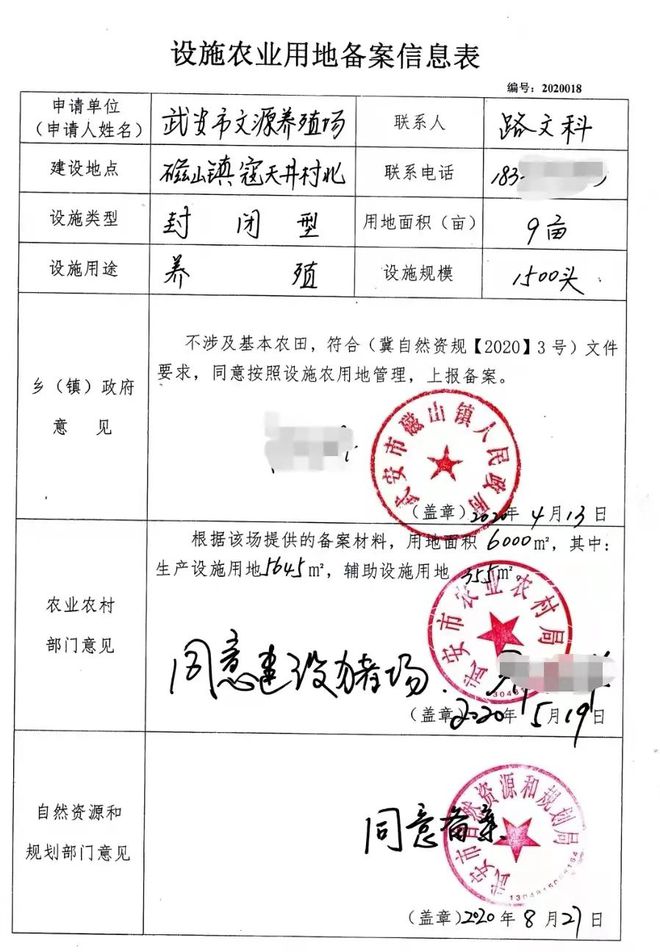 设施农业用地备案信息表
编号：2020018
申请单位
（申请人姓名）
武安市文源养殖场
联系人
路文科
建设地点
磁山镇寇天井村北
联系电话
183
设施类型
封闭型
用地面积（亩）
9亩
设施用途
养殖
设施规模
1500头
乡（镇）政府
意见
不涉及基本农田，符合（冀自然资规【2020】3号）文件
要求，同意按照设施农用地管理，上报备案。
武安市磁山镇人民政府
（盖章）2020年4月13日
农业农村
部门意见
根据该场提供的备案材料，用地面积6000㎡，其中：
生产设施用地5645㎡，辅助设施用地355㎡。
武安市农业农村局
同意建设猪场.
（盖章）2020年5月19日
自然资源和
规划部门意见
武安市自然资源和规划局
同意备案
（盖章）2020年8月27日